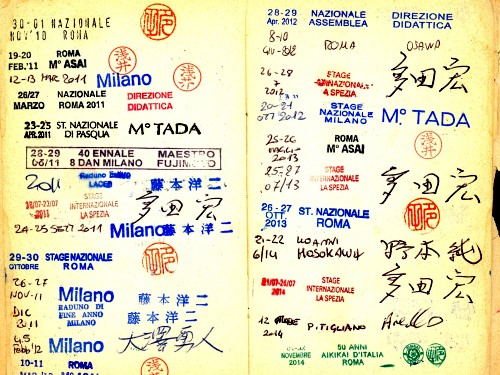 30-01 NAZIONALE
NOV'10 ROMA
19-20 ROMA
FEB.'11 M° ASAI
浅井
12-13 MAR 2011 Milano
26/27 NAZIONALE DIREZIONE
MARZO ROMA 2011 DIDATTICA
23-25 ST. NAZIONALE
APR.2011 DI PASQUA M° TADA
28-29 40 ENNALE MAESTRO
05/11 8 DAN MILANO FUJIMOTO
2011 Raduno Estivo
LACES 藤本洋二
18/07-23/07 STAGE
2011 INTERNAZIONALE
LA SPEZIA
多田宏
24-25 SETT 2011 Milano 藤本洋二
29-30 STAGE NAZIONALE
OTTOBRE ROMA
26-27
NOV-11 Milano 藤本洋二
DIC
2011 RADUNO DI
FINE ANNO
MILANO 藤本洋二
4,5
Febb '12 Milano 大澤勇人
10-11 ROMA
28-29 NAZIONALE DIREZIONE
Apr. 2012 ASSEMBLEA DIDATTICA
8-10
GIU-2012 ROMA OSAWA
26-28
7
2012 STAGE
INTERNAZIONALE
LA SPEZIA
多田宏
20-21
OTT 2012 STAGE
NAZIONALE
MILANO M° TADA
25-26
MAGGIO
2013 ROMA
M° ASAI
浅井
25-27
07/13 STAGE
INTERNAZIONALE
LA SPEZIA
多田宏
26-27
OTT.
2013 ST. NAZIONALE
ROMA
21-22
6/14 HOSOKAWA 野本純
21/07-26/07
2014 STAGE
INTERNAZIONALE
LA SPEZIA
多田宏
12
2014 PITIGLIANO
NOVEMBRE
2014 50 ANNI
AIKIKAI D'ITALIA
ROMA